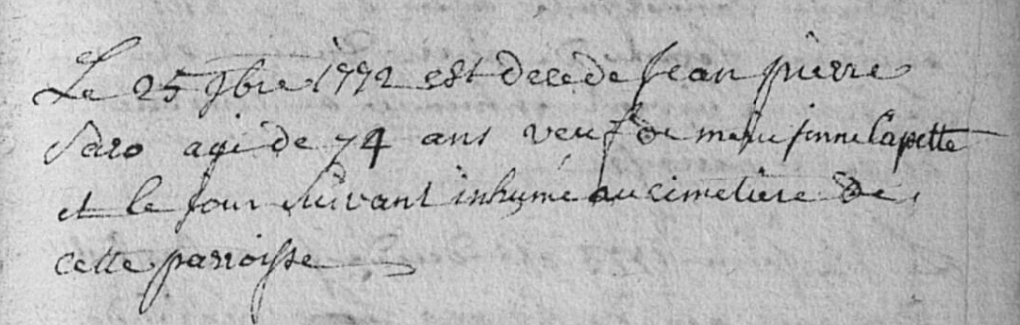 Le 25 9bre 1772 est decede Jean pierre
Saro agé de 74 ans veuf de marie jenne Capette
et le jour suivant inhumé au cimetiere de
cette parroisse